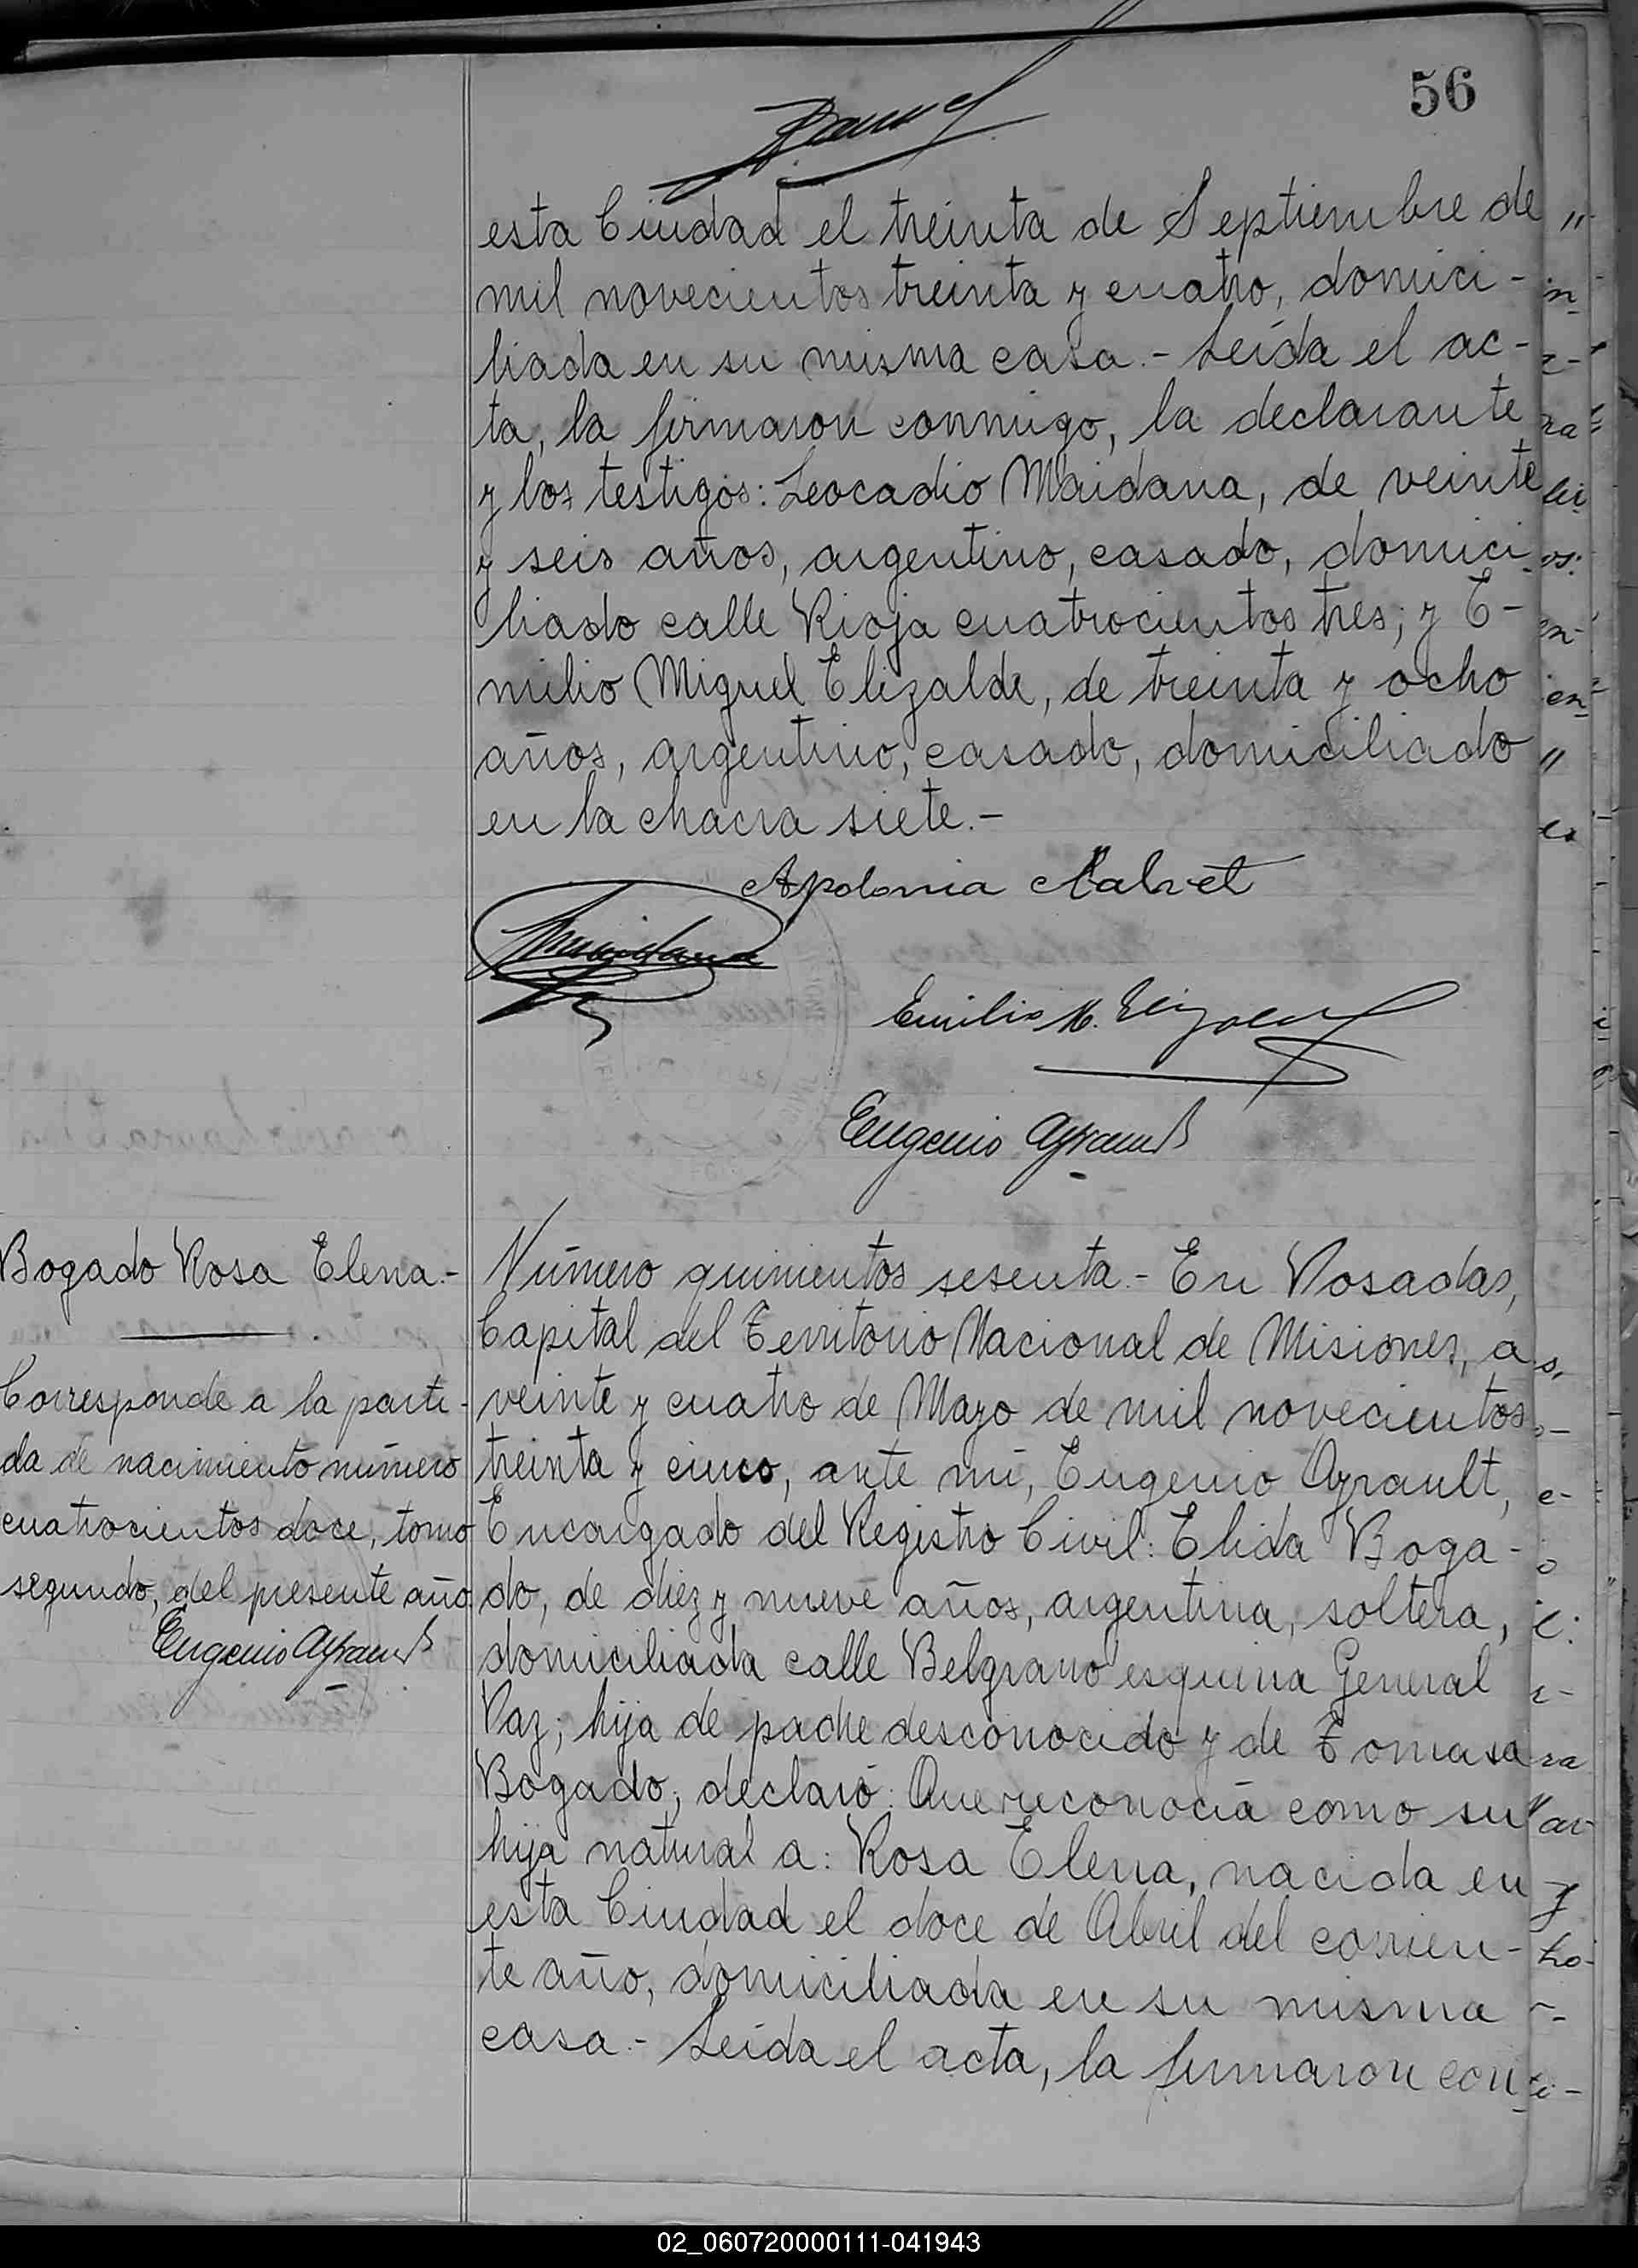 56
esta Ciudad el treinta de Septiembre de
mil novecientos treinta y cuatro, domici-
liada en su misma casa.- Leída el ac-
ta, la firmaron conmigo, la declarante
y los testigos: Leocadio Maidana, de veinte
y seis años, argentino, casado, domici-
liado calle Rioja cuatrocientos tres; y E-
milio Miguel Elizalde, de treinta y ocho
años, argentino, casado, domiciliado
en la chacra siete.-
Apolonia
Maidana
Emilio M. Elizalde
Eugenio Ayrault
Bogado Rosa Elena.-
Corresponde a la parti-
da de nacimiento número
cuatrocientos doce, tomo
segundo, del presente año.
Eugenio Ayrault
Número quinientos sesenta.- En Posadas,
Capital del Territorio Nacional de Misiones, a
veinte y cuatro de Mayo de mil novecientos
treinta y cinco, ante mí, Eugenio Ayrault,
Encargado del Registro Civil: Elida Boga-
do, de diez y nueve años, argentina, soltera,
domiciliada calle Belgrano esquina General
Paz; hija de padre desconocido y de Tomasa
Bogado; declaró: Que reconocía como su
hija natural a: Rosa Elena, nacida en
esta Ciudad el doce de Abril del corrien-
te año, domiciliada en su misma
casa.- Leída el acta, la firmaron con-
02_060720000111-041943